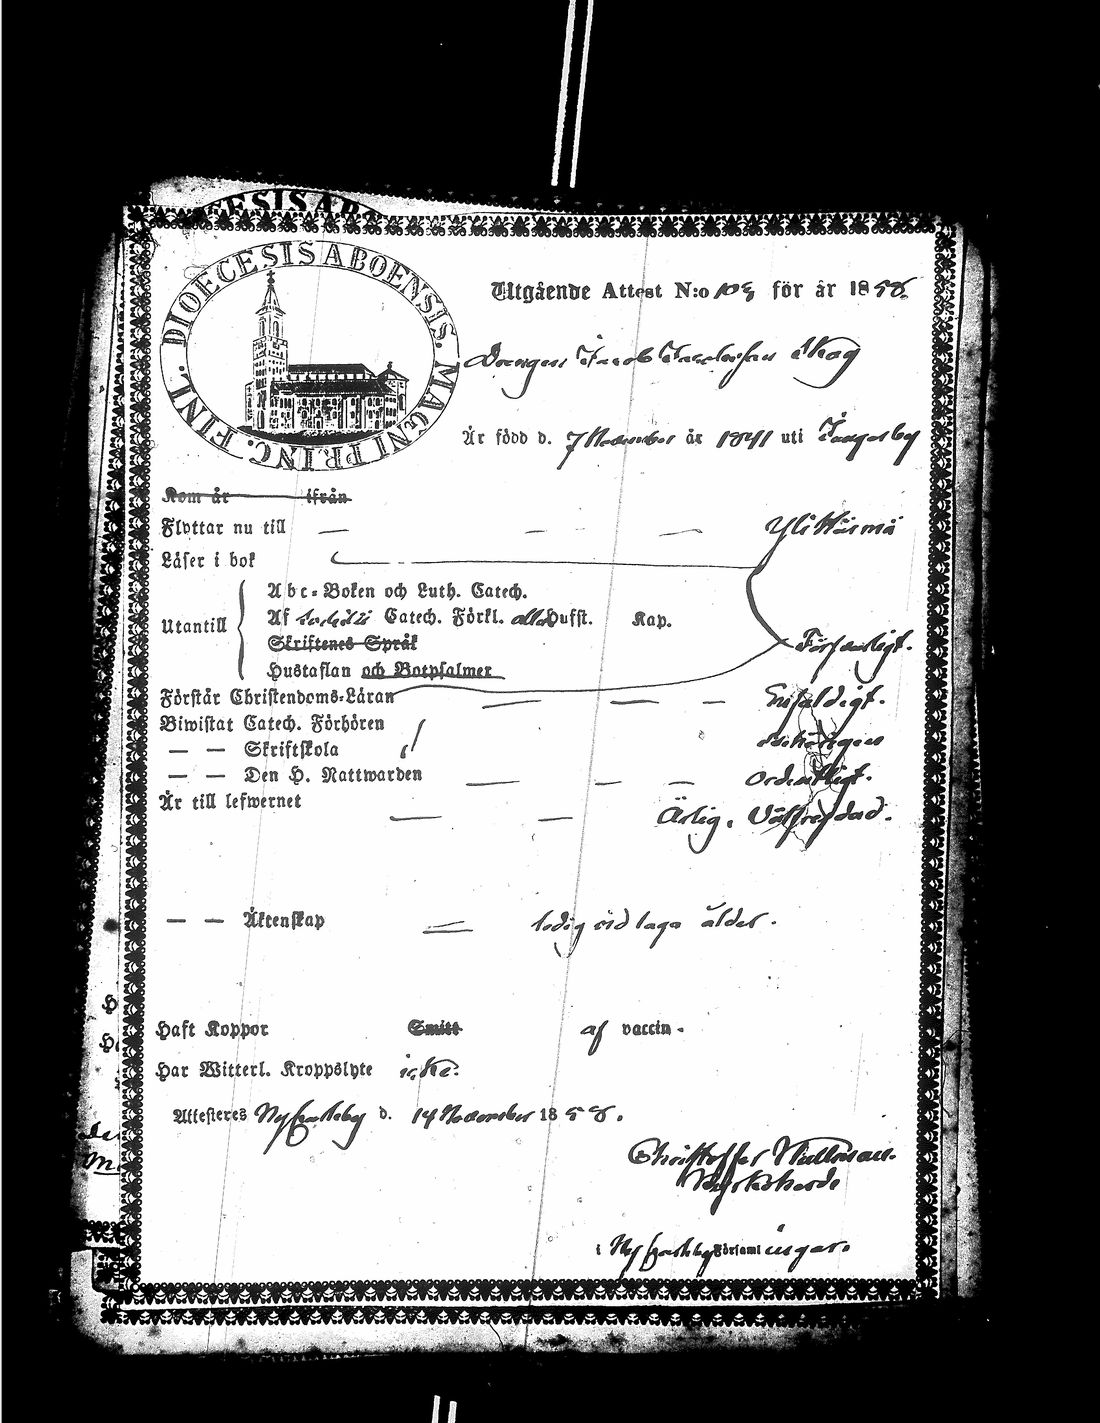 DIOECESIS ABOENSIS. MAGNI PRINC. FINL.
Utgående Attest N:o 103 för år 1858.
Drengen Jacob Jacobsson Skog
Är född d. 7 November år 1841 uti Jungarby
Kom år ifrån
Flyttar nu till — — — Ylihärmä
Läser i bok
Abc-Boken och Luth. Catech.
Utantill Af Catech. Förkl. alla Hufst. Kap.
Skriftenes Språk Förswarligt.
Hustaflan och Botpsalmer
Förstår Christendoms-Läran — — — Enfaldigt.
Biwistat Catech. Förhören
— — Skriftskola behörigen
— — Den H. Nattwarden — — — ordentligt.
Är till lefwernet — — Ärlig. Välfrejdad.
— — Äktenskap — ledig vid laga ålder.
Haft Koppor Smitt af vaccin.
Har Witterl. Kroppslyte icke.
Attesteres Ny Carleby d. 14 November 1858.
Christoffer
Kyrkoherde
i Ny Carleby Församlingar.